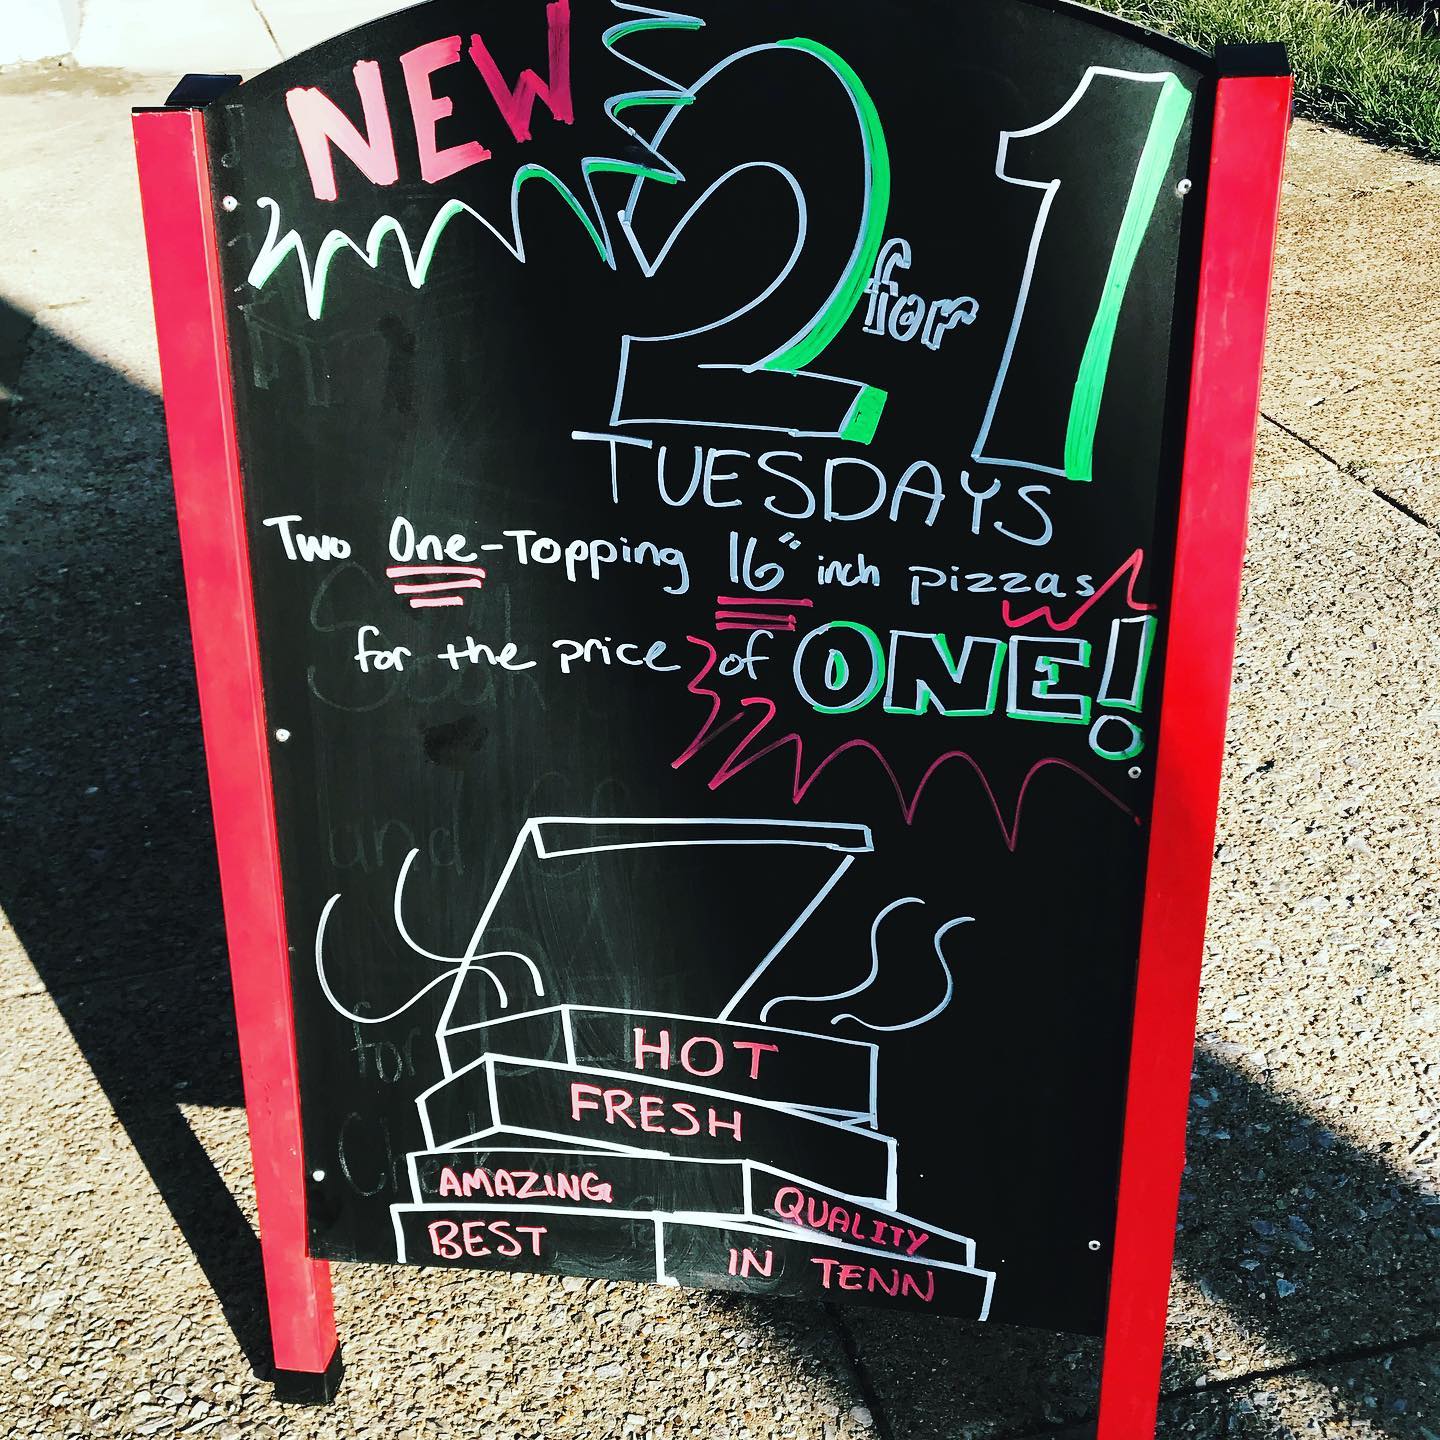 NEW
2 for 1
TUESDAYS
Two One-Topping 16" inch pizzas
for the price of ONE!
HOT
FRESH
AMAZING QUALITY
BEST IN TENN